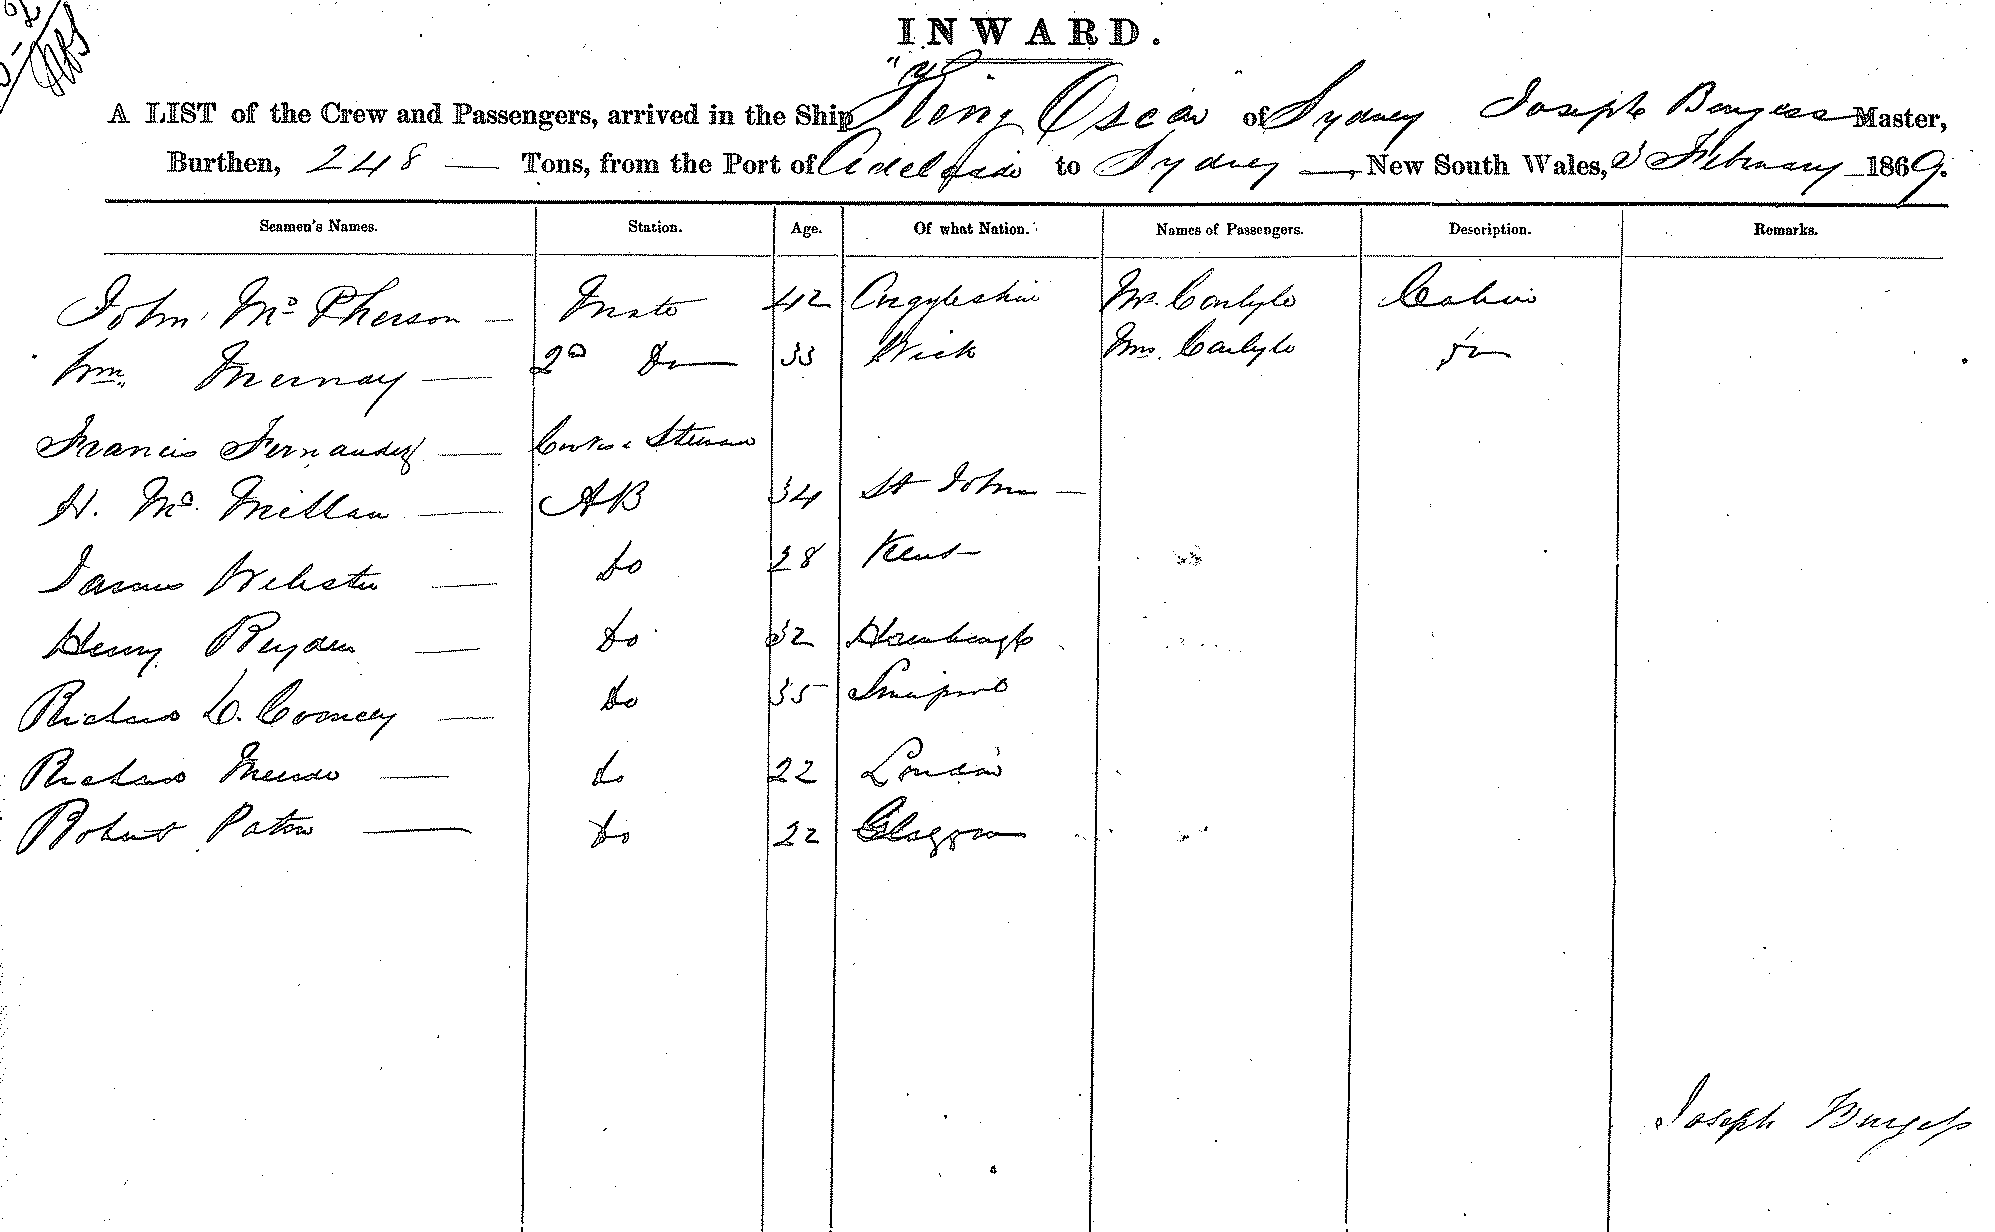 INWARD.
A LIST of the Crew and Passengers, arrived in the Ship "King Oscar" of Sydney Joseph Burgess Master,
Burthen, 248 — Tons, from the Port of Adelaide to Sydney — New South Wales, 2 February 1869.
Seamen's Names. Station. Age. Of what Nation. Names of Passengers. Description. Remarks.
John McPherson — Mate 42 Argyleshire Mr. Carlyle Cabin
Wm. — 2d Do — 33 Wick Mrs. Carlyle Do
Francis Fernandez — Cook & Steward
H. Mc Millan — AB 34 St John —
James Webster — Do 28 Kent
Henry — Do 32
Richard — Do 35 Liverpool
Richard — do 22 London
Robert Paton — Do 22 Glasgow
Joseph Burgess